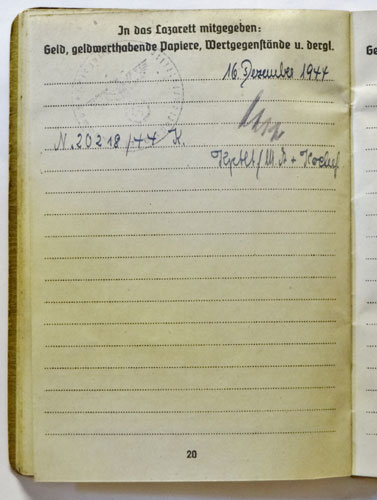 In das Lazarett mitgegeben:
Geld, geldwerthabende Papiere, Wertgegenstände u. dergl.
16. Dezember 1944
N. 20218/44 K.
Kptlt/M.A +
20